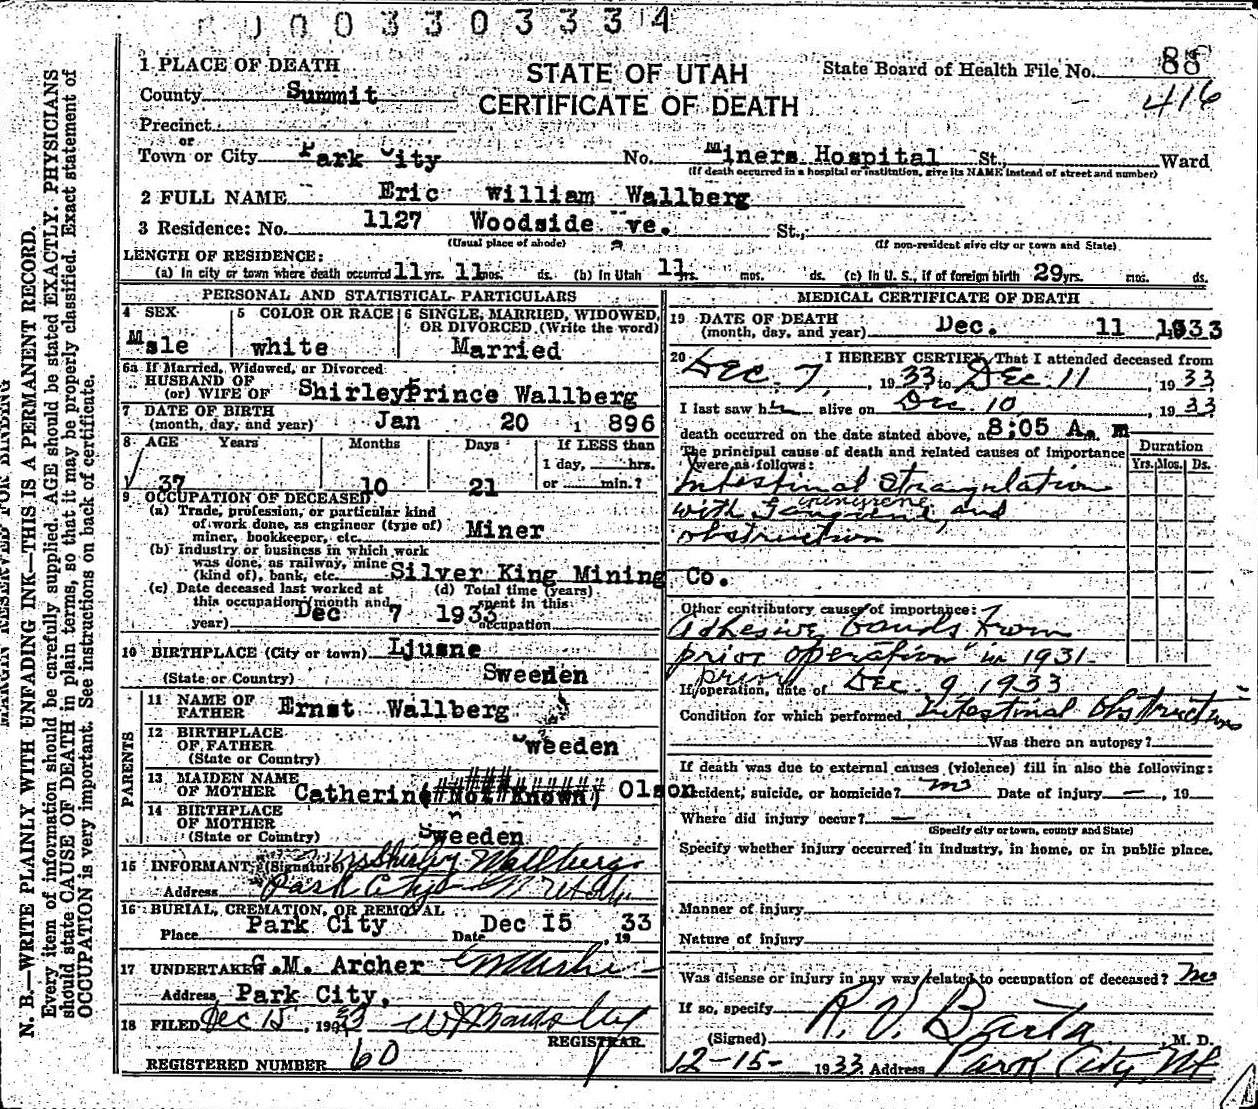 0 0 0 3 3 0 3 3 3 4
1 PLACE OF DEATH
STATE OF UTAH
CERTIFICATE OF DEATH
State Board of Health File No. 88
416
County Summit
Precinct
or
Town or City Park City No. Miners Hospital St., Ward
(If death occurred in a hospital or institution, give its NAME instead of street and number)
2 FULL NAME Eric William Wallberg
3 Residence: No. 1127 Woodside ve. St.,
a
(Usual place of abode) (If non-resident give city or town and State)
LENGTH OF RESIDENCE:
(a) In city or town where death occurred 11 yrs. 11 mos. ds. (b) In Utah 11 yrs. mos. ds. (c) In U. S., if of foreign birth 29 yrs. mos. ds.
PERSONAL AND STATISTICAL PARTICULARS
4 SEX
Male
5 COLOR OR RACE
white
6 SINGLE, MARRIED, WIDOWED, OR DIVORCED (Write the word)
Married
6a If Married, Widowed, or Divorced
HUSBAND OF
(or) WIFE OF Shirley Prince Wallberg
7 DATE OF BIRTH
(month, day, and year) Jan 20 1 896
8 AGE Years Months Days If LESS than
1 day, hrs.
or min.?
37 10 21
9 OCCUPATION OF DECEASED
(a) Trade, profession, or particular kind
of work done, as engineer (type of)
miner, bookkeeper, etc. Miner
(b) Industry or business in which work
was done, as railway, mine
(kind of), bank, etc. Silver King Mining Co.
(c) Date deceased last worked at
this occupation (month and
year) Dec 7 1933
(d) Total time (years)
spent in this
occupation
10 BIRTHPLACE (City or town) Ljusne
(State or Country) Sweeden
PARENTS
11 NAME OF
FATHER Ernst Wallberg
12 BIRTHPLACE
OF FATHER
(State or Country) Sweeden
13 MAIDEN NAME
OF MOTHER Catherine (Not Known) Olson
14 BIRTHPLACE
OF MOTHER
(State or Country) Sweeden
15 INFORMANT (Signature) Mrs Shirley Wallberg
Address Park City Utah
16 BURIAL, CREMATION, OR REMOVAL
Place Park City Date Dec 15 , 19 33
17 UNDERTAKER G.M. Archer GM Archer
Address Park City,
18 FILED Dec 15, 1933
REGISTRAR
REGISTERED NUMBER 60
MEDICAL CERTIFICATE OF DEATH
19 DATE OF DEATH
(month, day, and year) Dec. 11 1933
20 I HEREBY CERTIFY, That I attended deceased from
Dec. 7, , 1933 to Dec. 11 , 1933
I last saw him alive on Dec. 10 , 1933
death occurred on the date stated above, at 8:05 A. m
The principal cause of death and related causes of importance
were as follows:
Duration
Yrs. Mos. Ds.
Intestinal Strangulation
gangrene
with and
obstruction
Other contributory causes of importance:
Adhesive bands from
prior operation in 1931
prior
If operation, date of Dec. 9, 1933
Condition for which performed Intestinal Obstruction
Was there an autopsy?
If death was due to external causes (violence) fill in also the following:
Accident, suicide, or homicide? no Date of injury — , 19
Where did injury occur? —
(Specify city or town, county and State)
Specify whether injury occurred in industry, in home, or in public place.
Manner of injury
Nature of injury
Was disease or injury in any way related to occupation of deceased? no
If so, specify
(Signed) R. V. Barta , M. D.
12-15- 1933 Address Park City, Ut
MARGIN RESERVED FOR BINDING
N. B.—WRITE PLAINLY WITH UNFADING INK—THIS IS A PERMANENT RECORD.
Every item of information should be carefully supplied. AGE should be stated EXACTLY. PHYSICIANS
should state CAUSE OF DEATH in plain terms, so that it may be properly classified. Exact statement of
OCCUPATION is very important. See instructions on back of certificate.